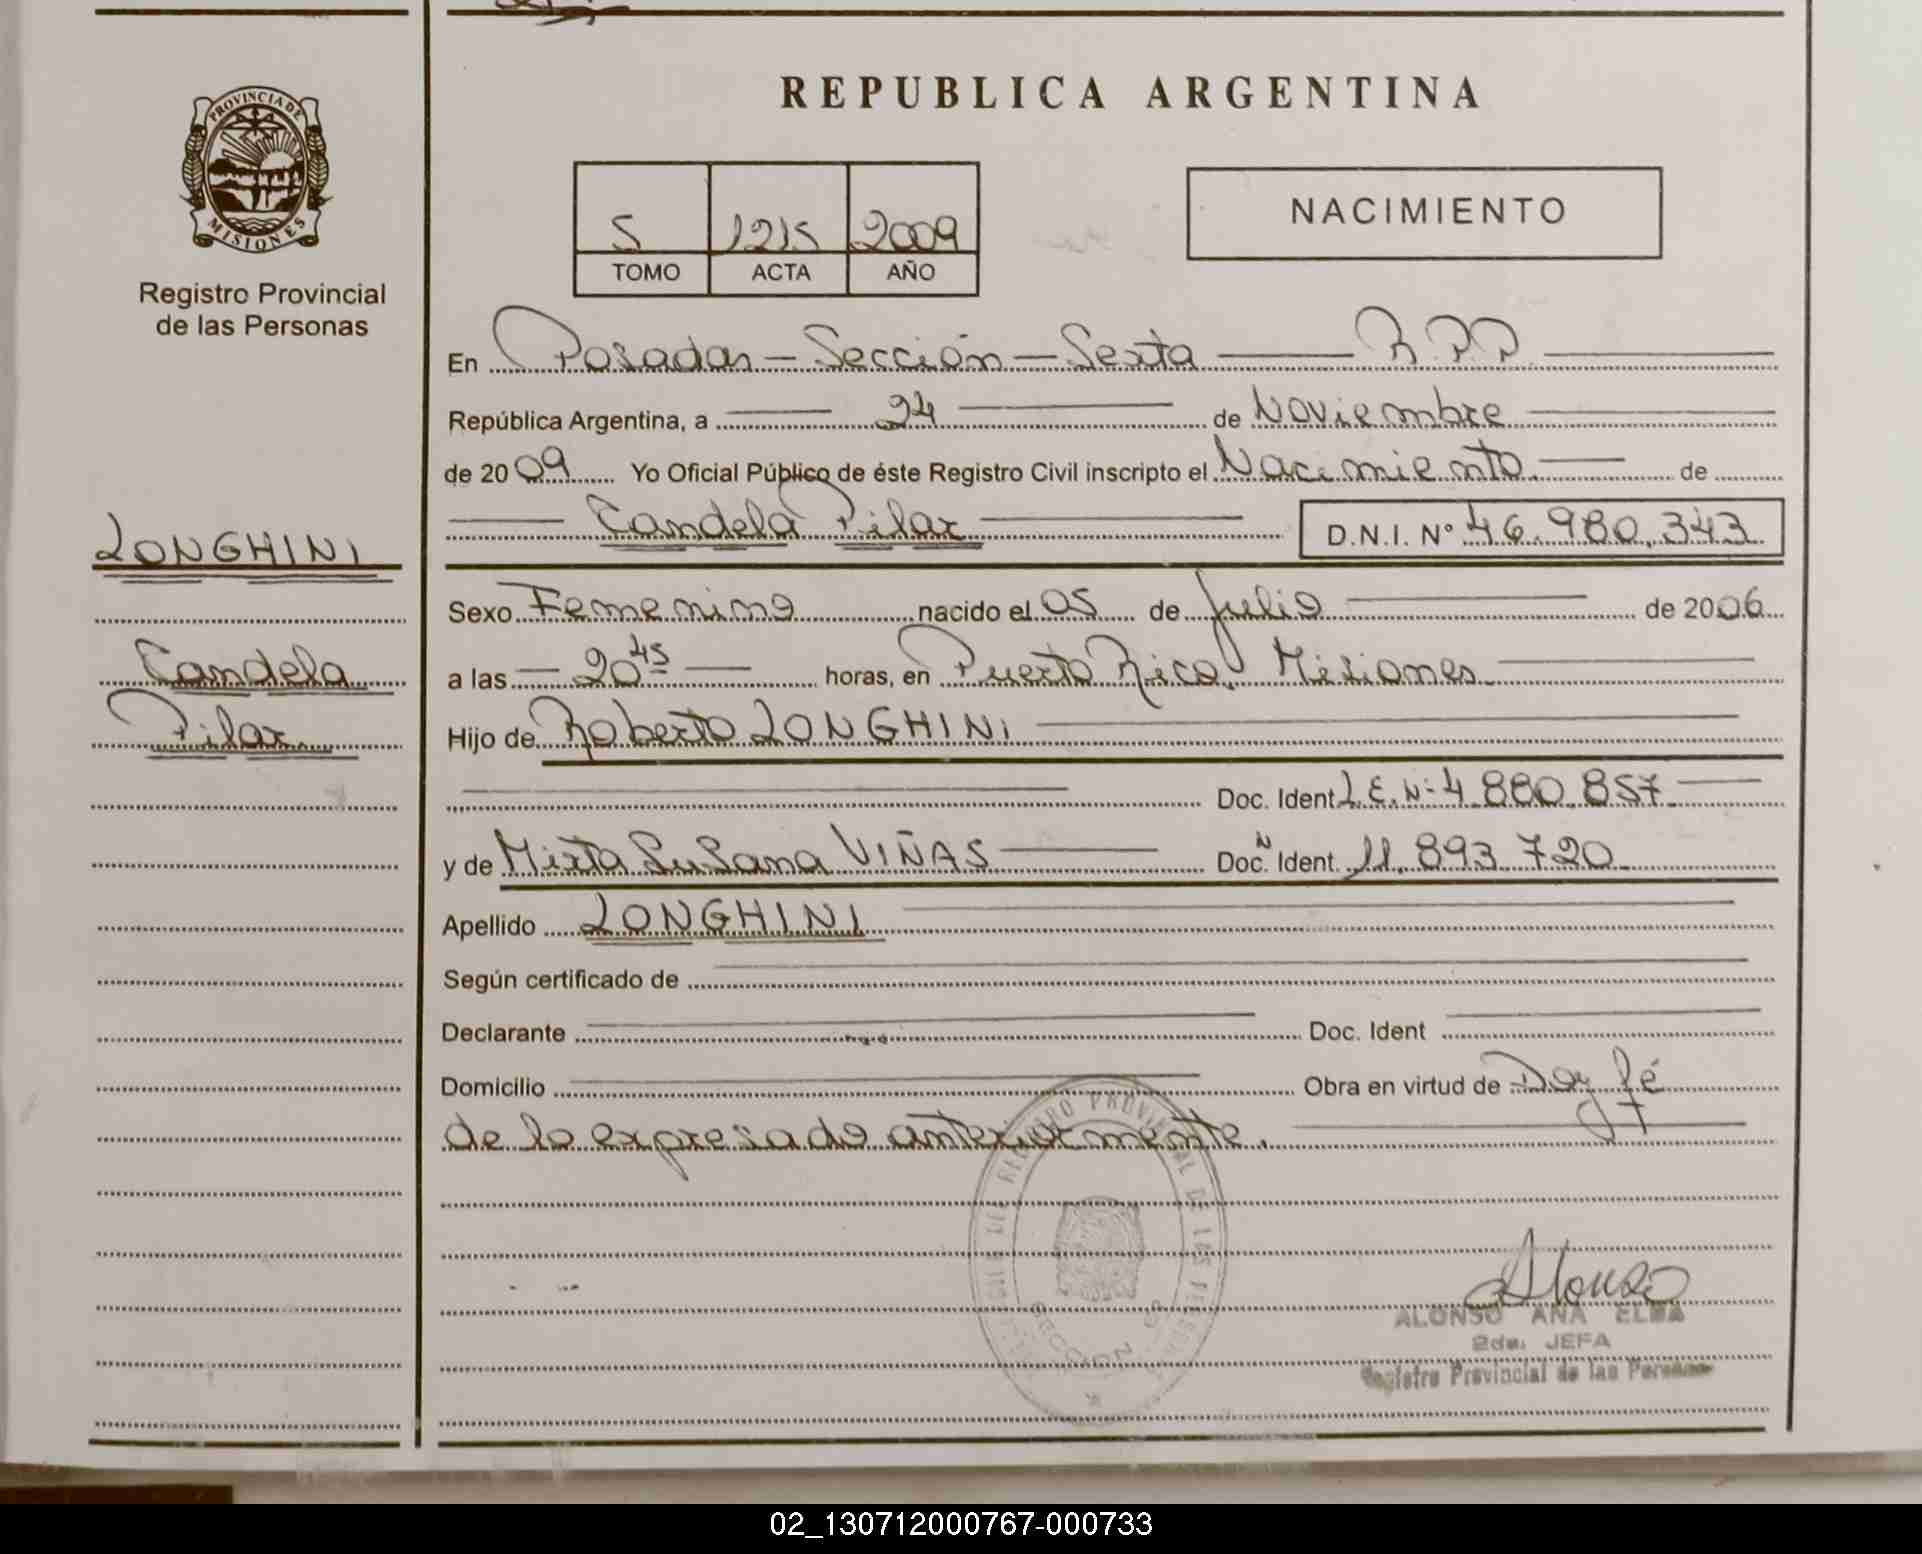 REPUBLICA ARGENTINA
PROVINCIA DE
MISIONES
Registro Provincial
de las Personas
5 1215 2009
TOMO ACTA AÑO
NACIMIENTO
En Posadas - Sección - Sexta R.P.P.
República Argentina, a 24 de Noviembre
de 2009 Yo Oficial Público de éste Registro Civil inscripto el Nacimiento de
Candela Pilar D.N.I. Nº 46.980.343
LONGHINI
Candela
Pilar
Sexo Femenino nacido el 05 de Julio de 2006
a las 20 45 horas, en Puerto Rico, Misiones
Hijo de Roberto LONGHINI
Doc. Ident L.E. Nº 4.880.857
y de Mirta Susana VIÑAS Doc. Ident. 11.893.720
Apellido LONGHINI
Según certificado de
Declarante Doc. Ident
Domicilio Obra en virtud de Doy fé
de lo expresado anteriormente.
ALONSO ANA ELBA
2da. JEFA
Registro Provincial de las Personas
02_130712000767-000733